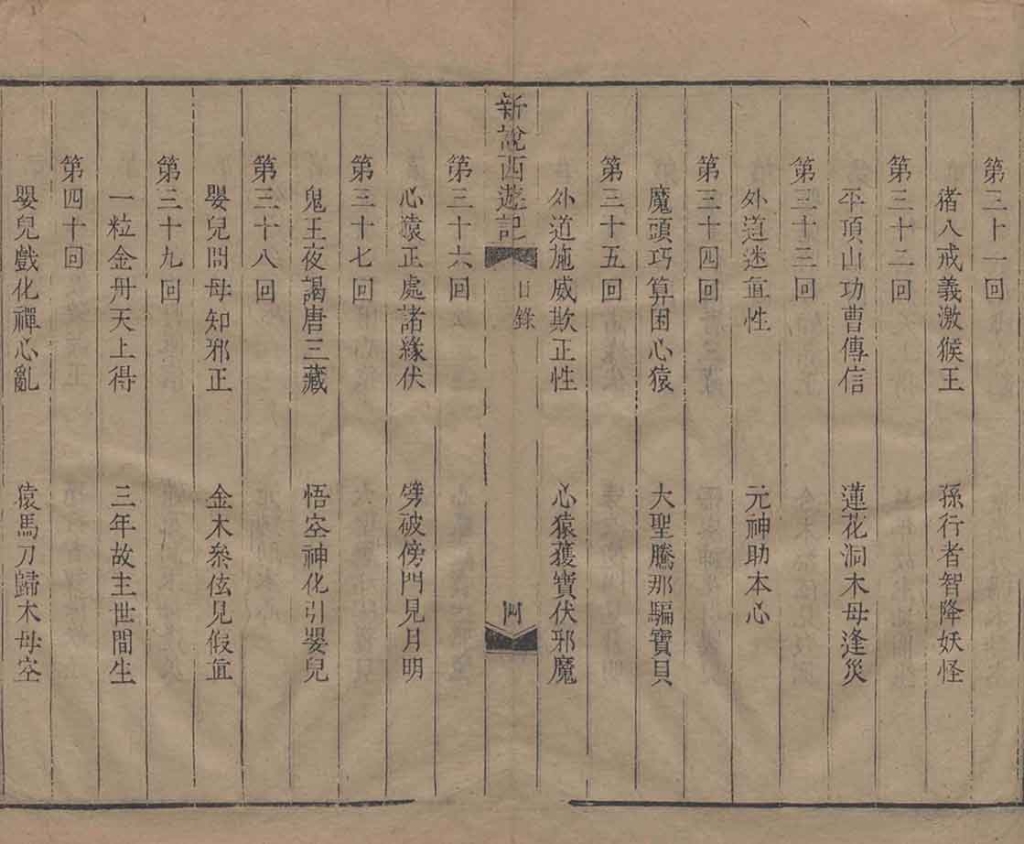 第三十一回
猪八戒義激猴王 孫行者智降妖怪
第三十二回
平頂山功曹傳信 蓮花洞木母逢災
第三十三回
外道迷眞性 元神助本心
第三十四回
魔頭巧算困心猿 大聖騰那騙寶貝
第三十五回
外道施威欺正性 心猿獲寶伏邪魔
新說西遊記 目錄 四
第三十六回
心猿正處諸緣伏 劈破傍門見月明
第三十七回
鬼王夜謁唐三藏 悟空神化引嬰兒
第三十八回
嬰兒問母知邪正 金木叅伭見假眞
第三十九回
一粒金丹天上得 三年故主世間生
第四十回
嬰兒戲化禪心亂 猿馬刀歸木母空